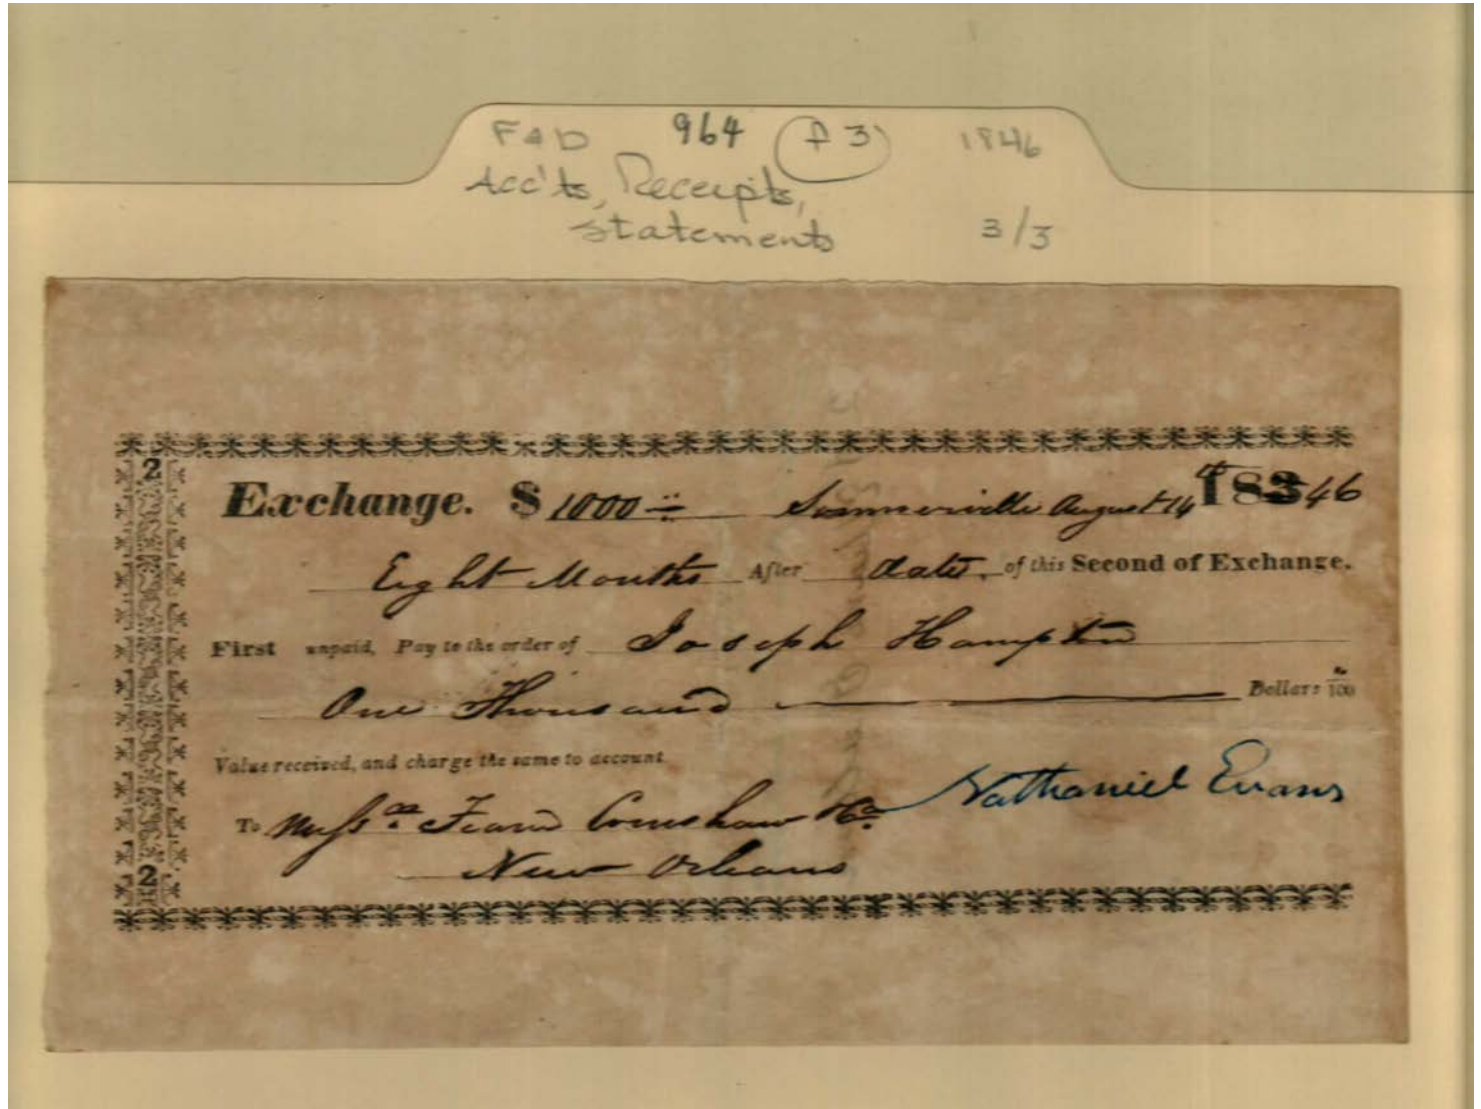 F&D 964 (f 3) 1846
Acc'ts, Receipts,
Statements 3/3
2
Exchange. $ 1000 Summerville August 14th 18346
Eight Months After date, of this Second of Exchange.
First unpaid, Pay to the order of Joseph Hampton
One Thousand Dollars /100
Value received, and charge the same to account
Nathaniel Evans
To Messrs. & Co.
New Orleans
2